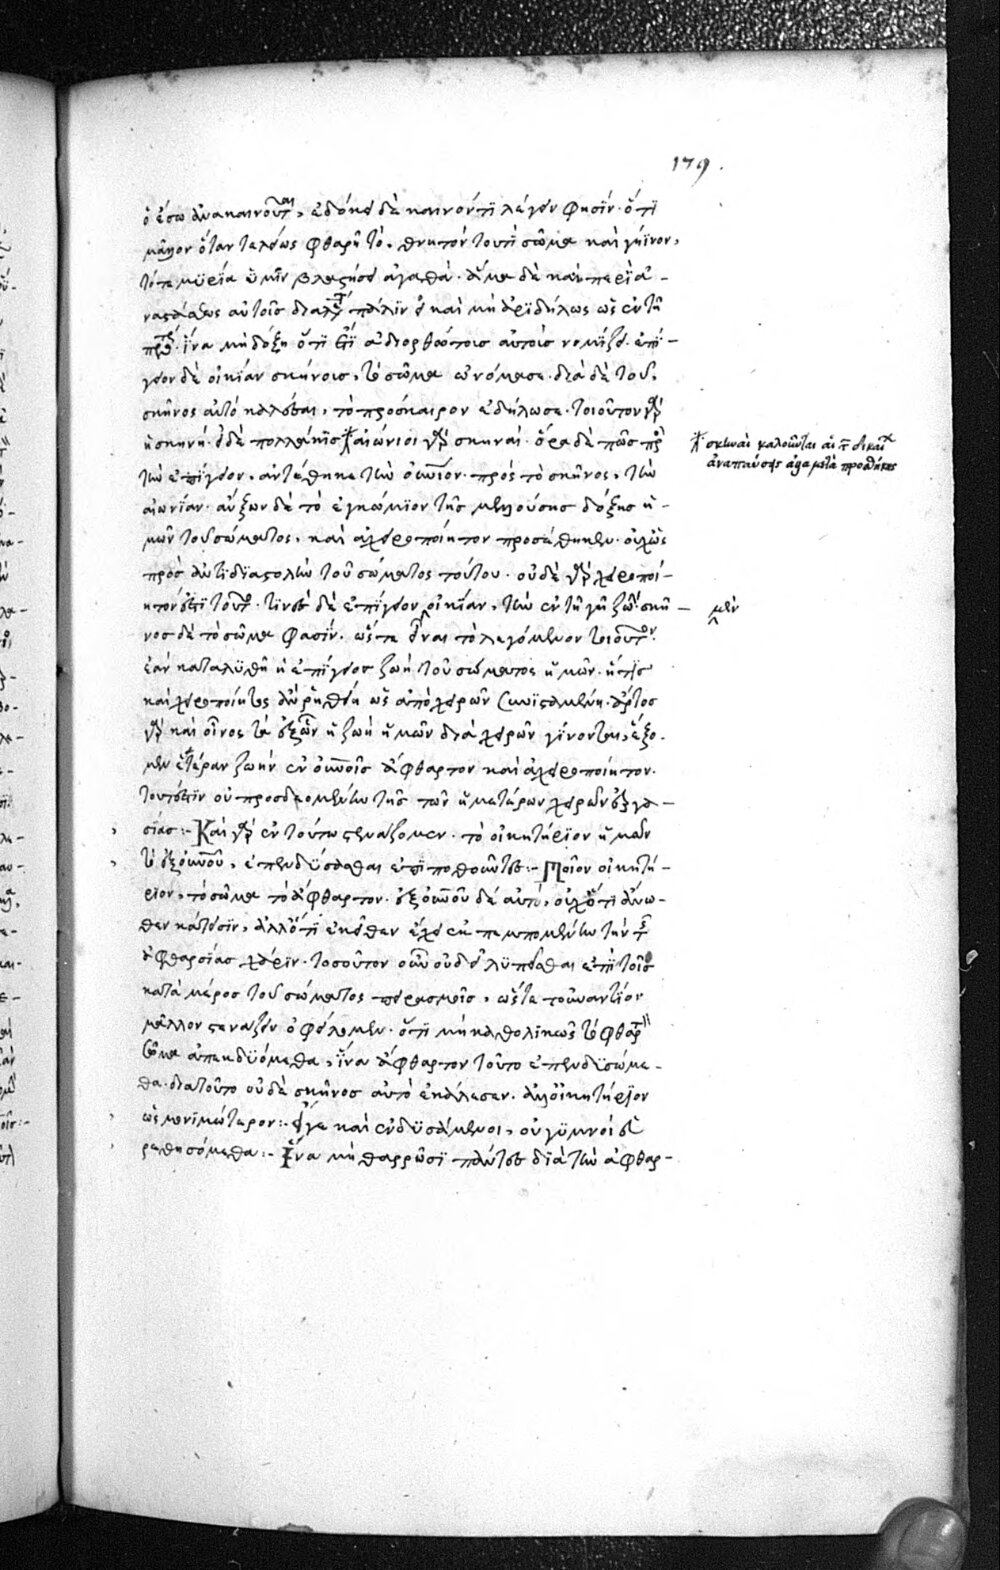 179.
ὁ ἔσω ἀνακαινοῦται, ἐδόκει δὲ καινόν τι λέγειν φησίν· ὅτι
μᾶλλον ὅταν τελέως φθαρῇ τὸ θνητὸν τουτὶ σῶμα καὶ γήϊνον,
τότε μυρία ὑμῖν βλαστήσει ἀγαθά· ἅμα δὲ καὶ περὶ ἀ-
ναστάσεως αὐτοῖς διαλέγεται πάλιν εἰ καὶ μὴ ἀριδήλως ὡς ἐν τῇ
πρώτῃ· ἵνα μὴ δόξῃ ὅτι ἔτι ἀδιορθώτοις αὐτοῖς νομίζει· ἐπί-
γειον δὲ οἰκίαν σκήνους, τὸ σῶμα ὠνόμασε· διὰ δὲ τοῦ,
σκῆνος αὐτὸ καλέσαι, τὸ πρόσκαιρον ἐδήλωσε· τοιοῦτον γὰρ
ἡ σκηνή· εἰ δὲ πολλάκις αἰώνιοι γὰρ σκηναί· ὅρα δὲ πῶς πρὸς
τὴν ἐπίγειον, ἀντέθηκε τὴν οὐράνιον· πρὸς τὸ σκῆνος, τὴν
αἰωνίαν· αὔξων δὲ τὸ ἐγκώμιον τῆς μελλούσης δόξης ἡ-
μῶν τοῦ σώματος, καὶ ἀχειροποίητον προσέθηκεν· οὐχ ὡς
πρὸς ἀντιδιαστολὴν τοῦ σώματος τούτου· οὐδὲ γὰρ χειροποί-
ητόν ἐστι τοῦτο· τινὲς δὲ ἐπίγειον οἰκίαν, τὴν ἐν τῇ γῇ ζωήν· σκῆ-
νος δὲ τὸ σῶμα φασίν· ὥστε εἶναι τὸ λεγόμενον τοιοῦτον·
ἐὰν καταλυθῇ ἡ ἐπίγειος ζωὴ τοῦ σώματος ἡμῶν· ἥτις
καὶ χειροποίητος ἂν ῥηθείη ὡς ἀπὸ χειρῶν συνισταμένη· ἄρτος
γὰρ καὶ οἶνος τὰ ἐξ ὧν ἡ ζωὴ ἡμῶν διὰ χειρῶν γίνονται, ἕξο-
μεν ἑτέραν ζωὴν ἐν οὐρανοῖς ἄφθαρτον καὶ ἀχειροποίητον·
τουτέστιν οὐ προσδεομένην τῆς τῶν ἡμετέρων χειρῶν ἐργα-
σίας:- Καὶ γὰρ ἐν τούτῳ στενάζομεν· τὸ οἰκητήριον ἡμῶν
τὸ ἐξ οὐρανοῦ, ἐπενδύσασθαι ἐπιποθοῦντες:- Ποῖον οἰκητή-
ριον, τὸ σῶμα τὸ ἄφθαρτον· ἐξ οὐρανοῦ δὲ αὐτό, οὐχ ὅτι ἄνω-
θεν κάτεισιν, ἀλλ' ὅτι ἐκεῖθεν ἔχει πεμπομένην τὴν τῆς
ἀφθαρσίας χάριν· τοσοῦτον οὖν οὐ δεῖ λυπεῖσθαι ἐπὶ τοῖς
κατὰ μέρος τοῦ σώματος πειρασμοῖς, ὥστε τοὐναντίον
μᾶλλον στενάζειν ὀφείλομεν· ὅτι μὴ καθολικῶς τὸ φθαρτὸν
σῶμα ἀπεκδυόμεθα, ἵνα ἄφθαρτον τοῦτο ἐπενδυσώμε-
θα· διὰ τοῦτο οὐδὲ σκῆνος αὐτὸ ἐκάλεσεν· ἀλλ' οἰκητήριον
ὡς μονιμώτερον:- εἴγε καὶ ἐνδυσάμενοι, οὐ γυμνοὶ εὑ-
ρεθησόμεθα:- Ἵνα μὴ θαρρῶσι πάντες διὰ τὴν ἀφθαρ-
σκηναὶ καλοῦνται αἱ τῶν δικαίων
ἀναπαύσεις ἀλλὰ μετὰ προσθήκης
μὲν